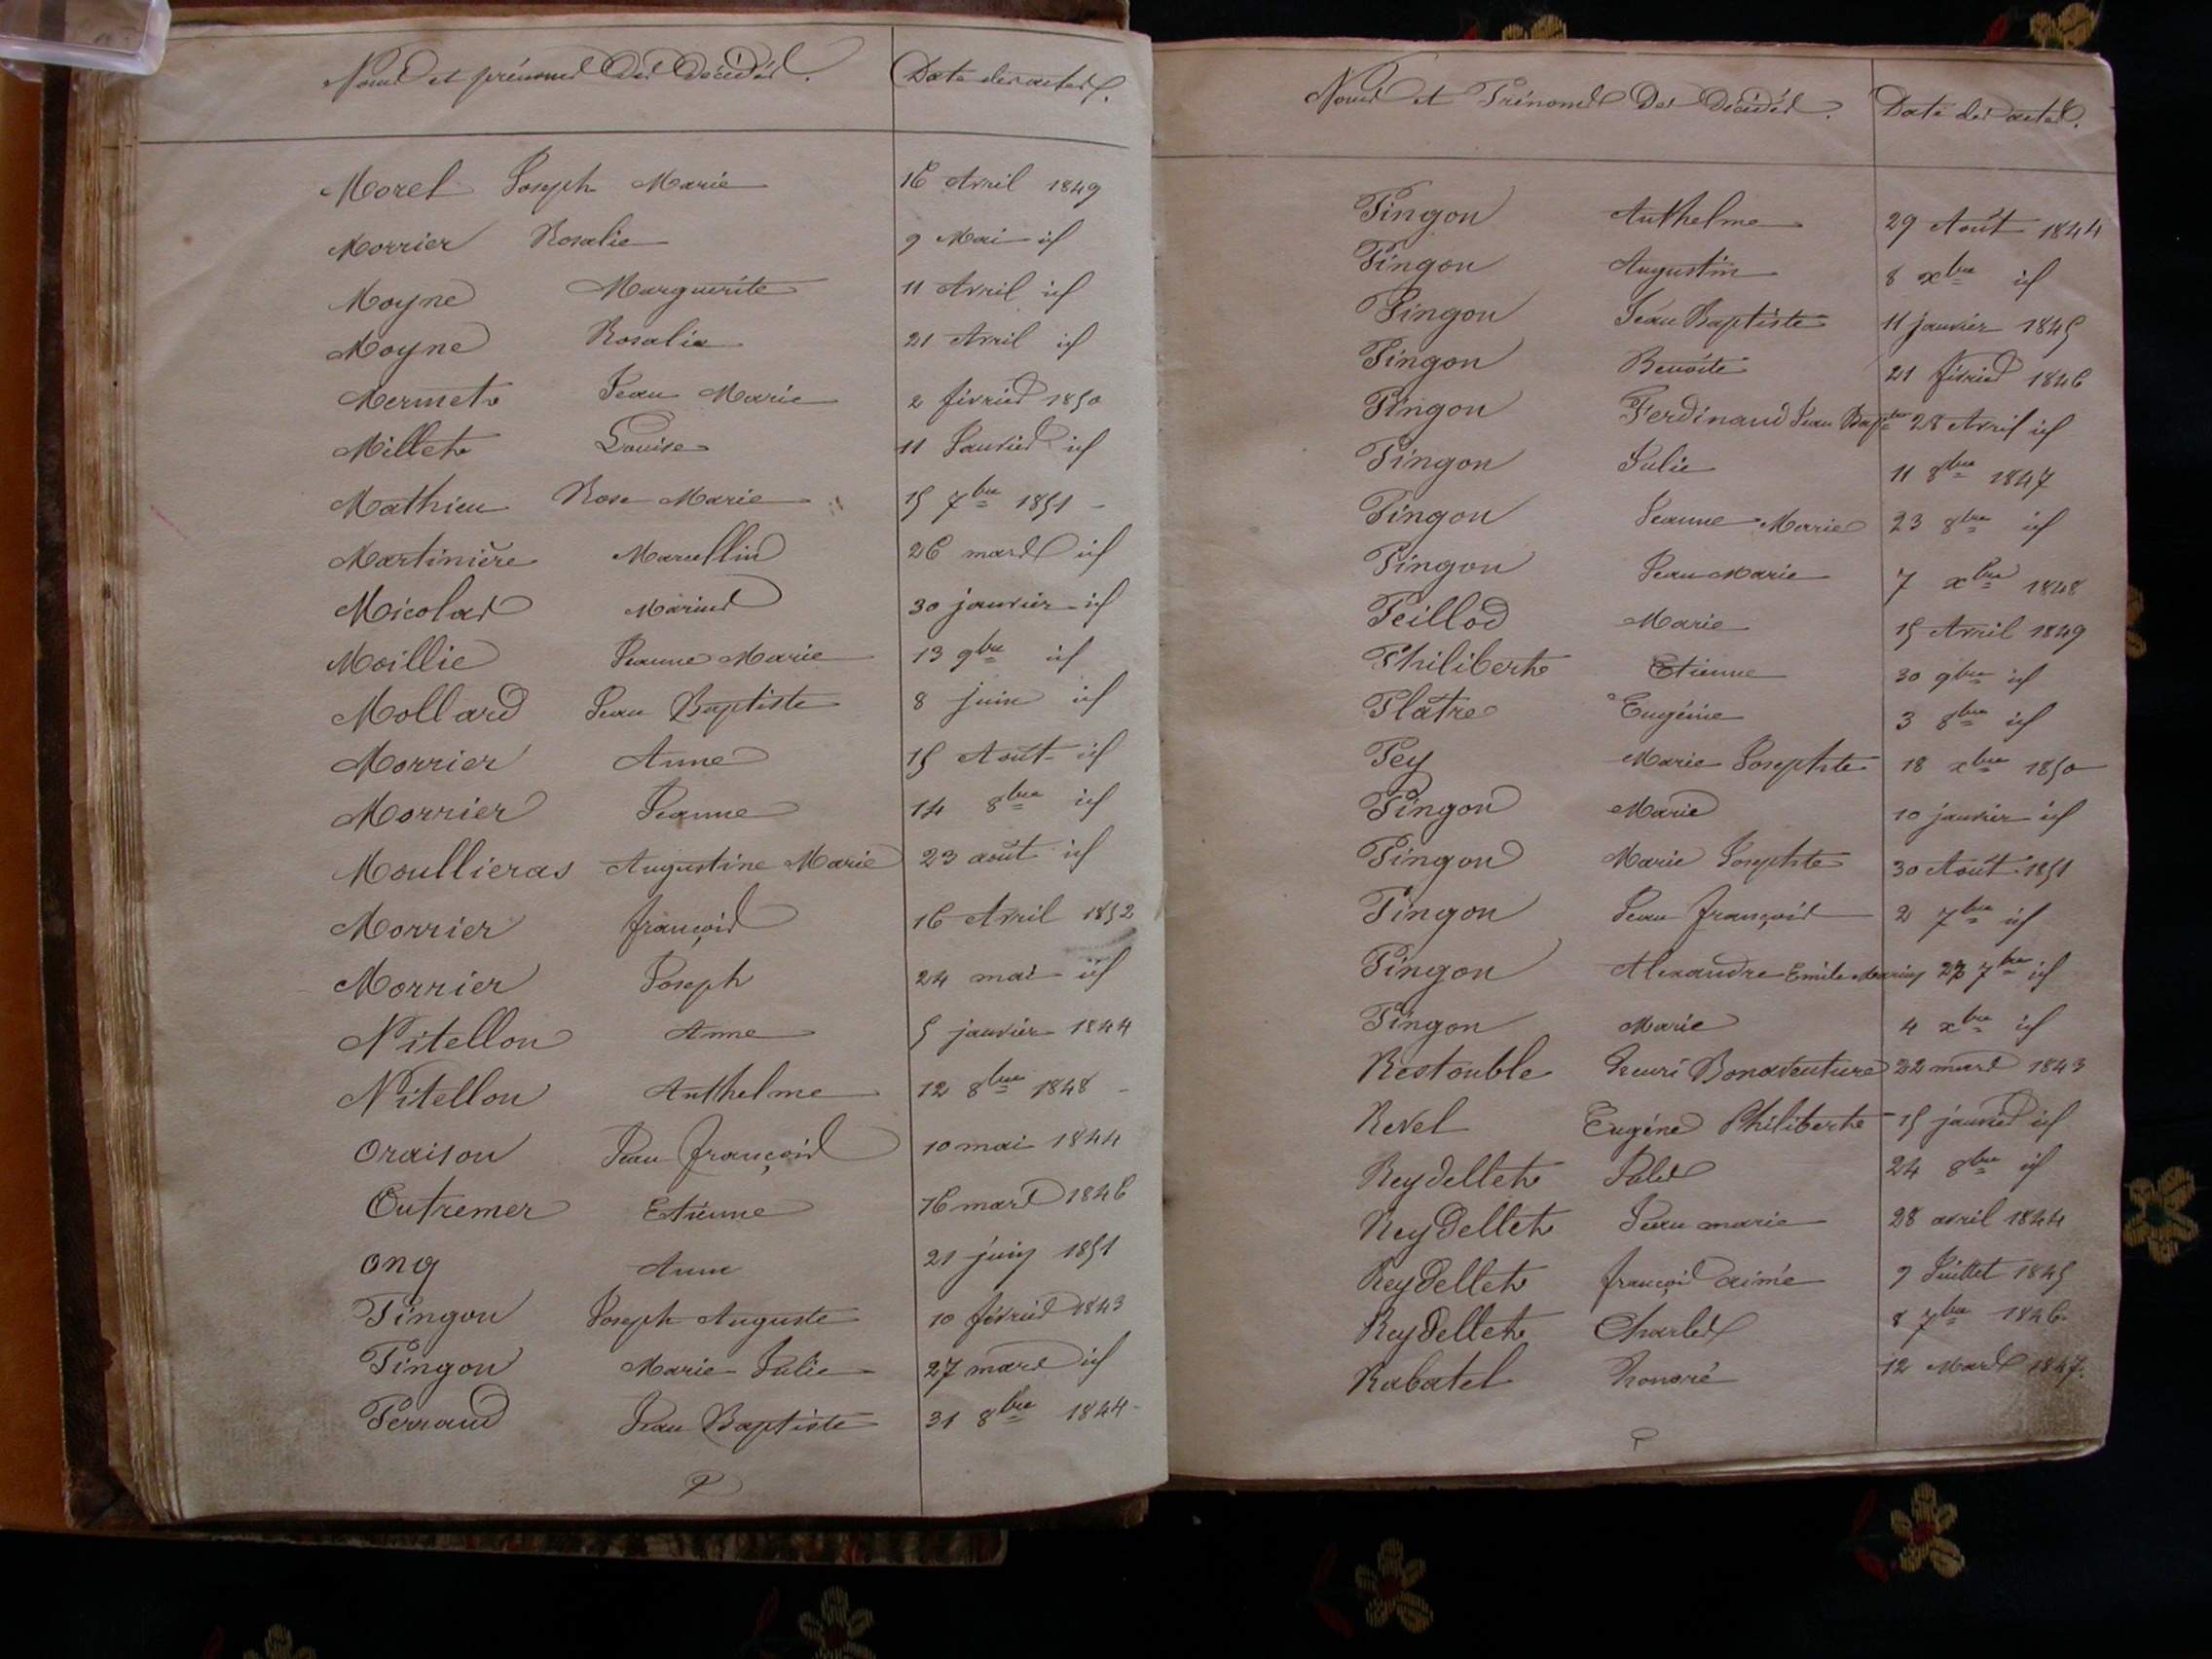 Noms et prénoms des décédés. Date des actes.
Morel Joseph Marie 16 Avril 1849
Morrier Rosalie 9 Mai id
Moyne Marguerite 11 Avril id
Moyne Rosalie 21 Avril id
Mermet Jean Marie 2 février 1850
Millet Louise 11 Janvier id
Mathieu Rose Marie 15 7bre 1851
Martinière Marcellin 26 mars id
Micolas Marius 30 janvier id
Moillie Jeanne Marie 13 9bre id
Mollard Jean Baptiste 8 juin id
Morrier Anne 15 Août id
Morrier Jeanne 14 8bre id
Moullieras Augustine Marie 23 août id
Morrier françois 16 Avril 1852
Morrier Joseph 24 mai id
Nitellon Anne 5 janvier 1844
Nitellon Anthelme 12 8bre 1848
Oraison Jean françois 10 mai 1844
Outremer Etienne 16 mars 1846
Ony Anne 21 juin 1851
Pingon Joseph Auguste 10 février 1843
Pingon Marie Julie 27 mars id
Perraud Jean Baptiste 31 8bre 1844
Noms et Prénoms des décédés. Date des actes.
Pingon Anthelme 29 Août 1844
Pingon Augustin 8 xbre id
Pingon Jean Baptiste 11 janvier 1845
Pingon Benoîte 21 février 1846
Pingon Ferdinand Jean Bapte 28 Avril id
Pingon Julie 11 8bre 1847
Pingon Jeanne Marie 23 8bre id
Pingon Jean Marie 7 xbre 1848
Peillod Marie 15 Avril 1849
Philibert Etienne 30 9bre id
Platre Eugénie 3 8bre id
Pey Marie Josephte 18 xbre 1850
Pingon Marie 10 janvier id
Pingon Marie Josephte 30 Août 1851
Pingon Jean françois 2 7bre id
Pingon Alexandre Emile Marius 7bre id
Pingon Marie 4 xbre id
Restouble henri Bonaventure 22 mars 1843
Revel Eugène Philibert 15 janvier id
Reydellet Jules 24 8bre id
Reydellet Jean marie 28 avril 1844
Reydellet françois aimé 9 Juillet 1845
Reydellet Charles 8 7bre 1846
Rabatel honoré 12 Mars 1847.